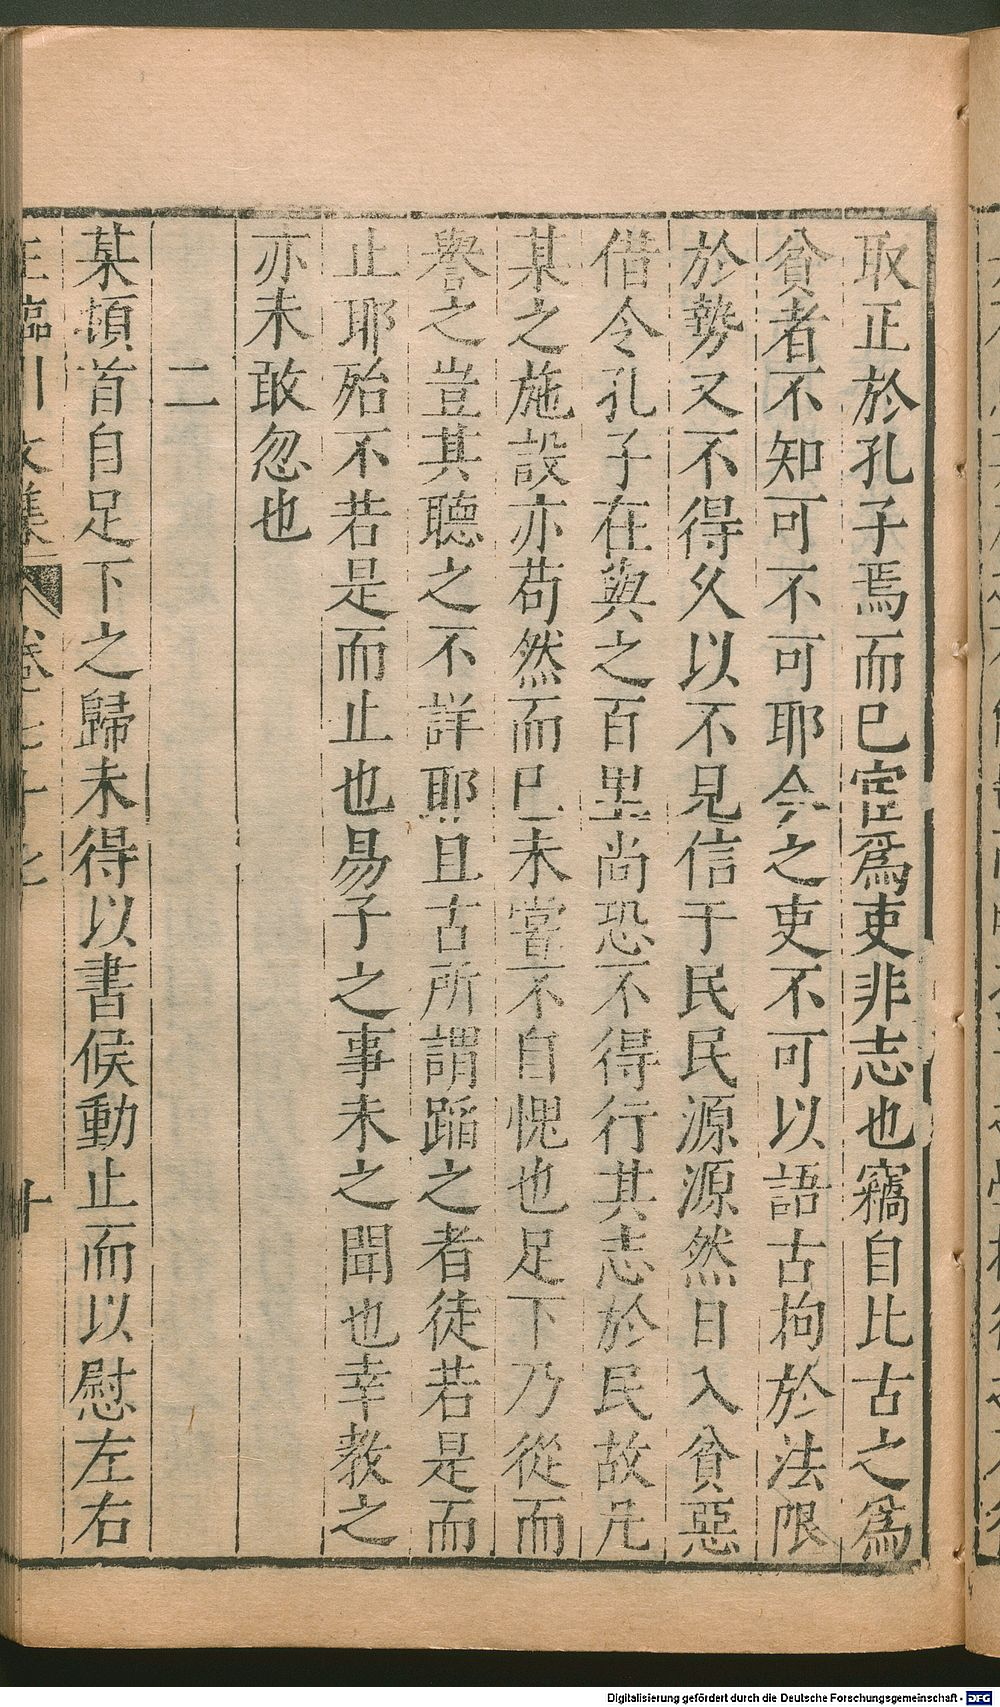 取正於孔子焉而已宦爲吏非志也竊自比古之爲
貧者不知可不可耶今之吏不可以語古拘於法限
於勢又不得久以不見信于民民源源然日入貧惡
借令孔子在與之百里尚恐不得行其志於民故凡
某之施設亦苟然而已未嘗不自愧也足下乃從而
譽之豈其聽之不詳耶且古所謂蹈之者徒若是而
止耶殆不若是而止也易子之事未之聞也幸教之
亦未敢忽也
二
某頓首自足下之歸未得以書候動止而以慰左右
王臨川文集 卷七十七 十
Digitalisierung gefördert durch die Deutsche Forschungsgemeinschaft - DFG